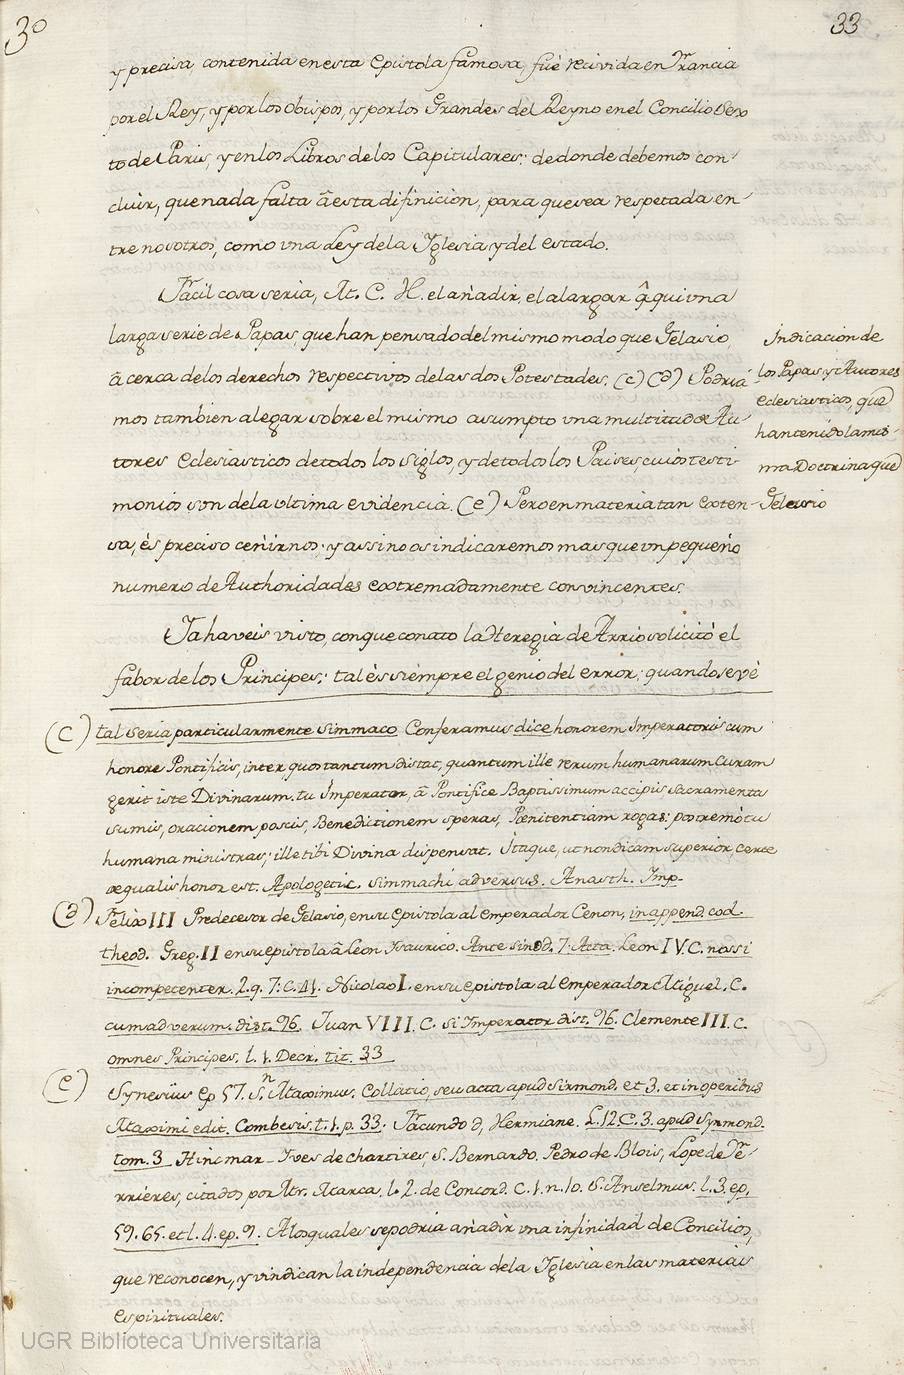 30
33
y precisa, contenida en esta Epistola famosa, fué recivida en Francia
por el Rey, y por los Obispos, y por los Grandes del Reyno en el Concilio Sex
to de Paris, y en los Libros de los Capitulares: de donde debemos con-
cluir, que nada falta â esta difinicion, para que sea respetada en-
tre nosotros, como una Ley de la Iglesia y del estado.
Facil cosa seria, At. C. H. el añadir, el alargar âqui una
larga serie de Papas, que han pensado del mismo modo que Gelasio,
â cerca de los derechos respectivos de las dos Potestades. (c) (d) Podria
mos tambien alegar sobre el mismo asumpto una multitud de Au-
tores eclesiasticos de todos los siglos, y de todos los Paises, cuios testi-
monios son de la ultima evidencia. (e) Pero en materia tan exten-
sa, és preciso ceñirnos; y assi no os indicaremos mas que un pequeño
numero de Authoridades extremadamente convincentes.
Indicacion de
los Papas y Autores
eclesiasticos, que
han tenido la mis-
ma Doctrina que
Gelasio
Ya haveis visto, con que conato la Heregia de Arrio solicitó el
fabor de los Principes: tal és siempre el genio del error; quando se vé
(c) tal seria particularmente Simmaco Conferamus dice honorem Imperatoris cum
honore Pontificis, inter quos tantum distat, quantum ille rerum humanarum curam
gerit iste Divinarum. tu Imperator, â Pontifice Baptissimum accipis Sacramenta
sumis, oracionem poscis, Benedictionem speras, Pœnitentiam rogas: postremò tu
humana ministras; ille tibi Divina dispensat. Itaque, ut non dicam superior, certe
æqualis honor est. Apologetic. Simmachi adversus. Anasth. Imp.
(d) Felix III Predecesor de Gelasio, en su epistola al emperador Cenon, in append. cod.
theod. Greg. II en su epistola â Leon Isaurico. Ante sinod. 7. Acta. Leon IV. C. nossi
incompetenter. 2. q. 7. C. 41. Nicolao I. en su epistola al emperador Miguel, C.
cum adverum. dist. 96. Juan VIII. C. Si Imperator dist. 96. Clemente III. C.
omnes Principes. l. 1. Decr. tit. 33
(e) Synesius Ep 57. Sn. Maximus. Collatio, seu acta apud Sirmond. et 3. et in operibus
Maximi edit. Combesis. t. 1. p. 33. Facundo d, Hermiane. L. 12 C. 3. apud Syrmond.
tom. 3 Hincmar - Ives de Chartres, S. Bernardo. Pedro de Blois, Lope de Fe-
rrieres, citados por Mr. Marca. l. 2. de Concord. C. 1. n. 10. S. Anselmus. l. 3. ep.
59. 65. et l. 4. ep. 9. A los quales se podria añadir una infinidad de Concilios,
que reconocen, y vindican la independencia de la Iglesia en las materias
espirituales.
UGR Biblioteca Universitaria